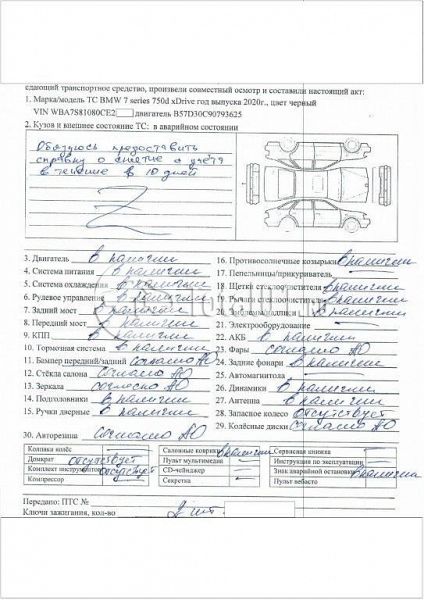 сдающий транспортное средство, произвели совместный осмотр и составили настоящий акт:
1. Марка/модель ТС BMW 7 series 750d xDrive год выпуска 2020г., цвет черный
VIN WBA7S81080CE2 двигатель B57D30C90793625
2. Кузов и внешнее состояние ТС: в аварийном состоянии
Обязуюсь предоставить
справку о снятие с учёта
в течение в 10 дней
3. Двигатель в наличии
4. Система питания в наличии
5. Система охлаждения в наличии
6. Рулевое управление в наличии
7. Задний мост в наличии
8. Передний мост в наличии
9. КПП в наличии
10. Тормозная система в наличии
11. Бампер передний/задний Согласно АО
12. Стёкла салона Согласно АО
13. Зеркала согласно АО
14. Подголовники в наличии
15. Ручки дверные в наличии
16. Противосолнечные козырьки в наличии
17. Пепельницы/прикуриватель
18. Щетки стеклоочистителя в наличии
19. Рычаги стеклоочистителя в наличии
20.
21. Электрооборудование
22. АКБ в наличии
23. Фары согласно АО
24. Задние фонари в наличии
25. Автомагнитола
26. Динамики в наличии
27. Антенна в наличии
28. Запасное колесо отсутствует
29. Колёсные диски согласно АО
30. Авторезина согласно АО
Колпаки колёс Салонные коврики в наличии Сервисная книжка
Домкрат отсутствует Пульт мультимедиа Инструкция по эксплуатации
Комплект инструментов отсутствует CD-чейнджер Знак аварийной остановки в наличии
Компрессор Секретка Пульт вебасто
Передано: ПТС №
Ключи зажигания, кол-во 2 шт